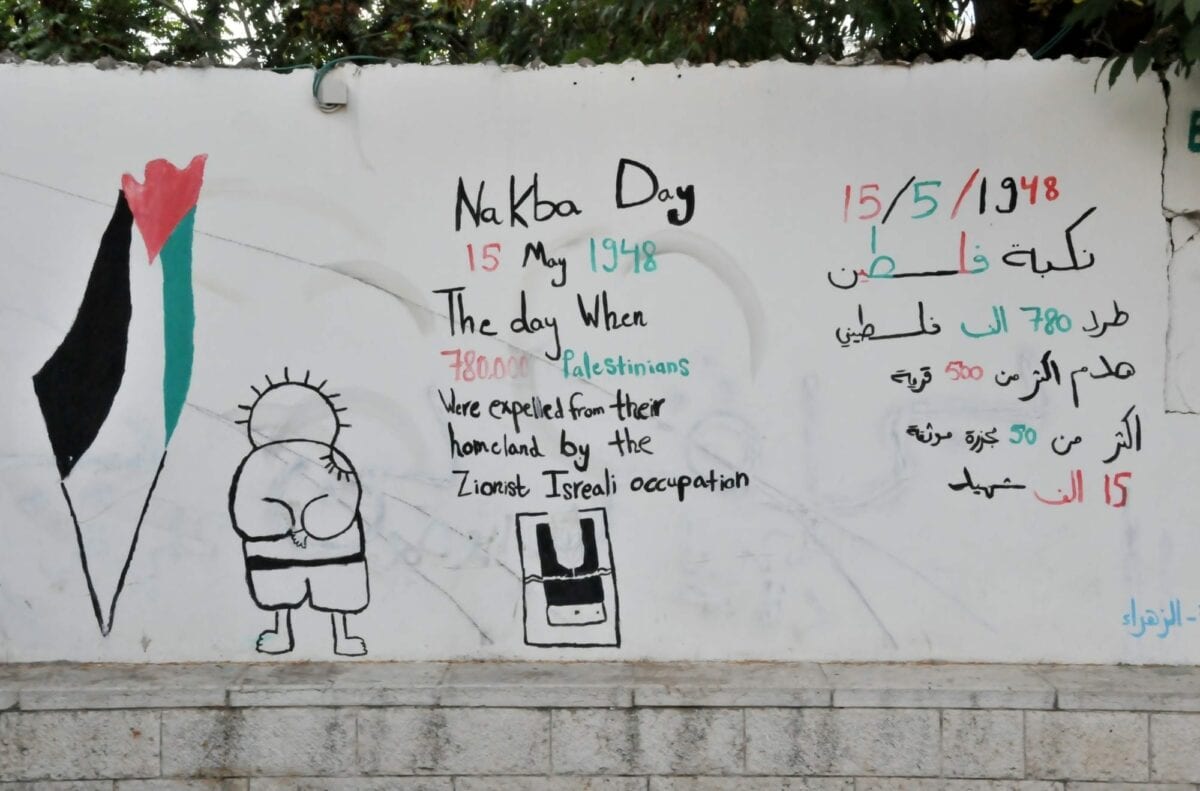 Nakba Day
15 May 1948
The day When
780.000 Palestinians
Were expelled from their
homeland by the
Zionist Isreali occupation
15/5/1948
نكبة فلسطين
طرد 780 الف فلسطيني
هدم اكثر من 500 قرية
اكثر من 50 مجزرة موثقة
15 الف شهيد
- الزهراء